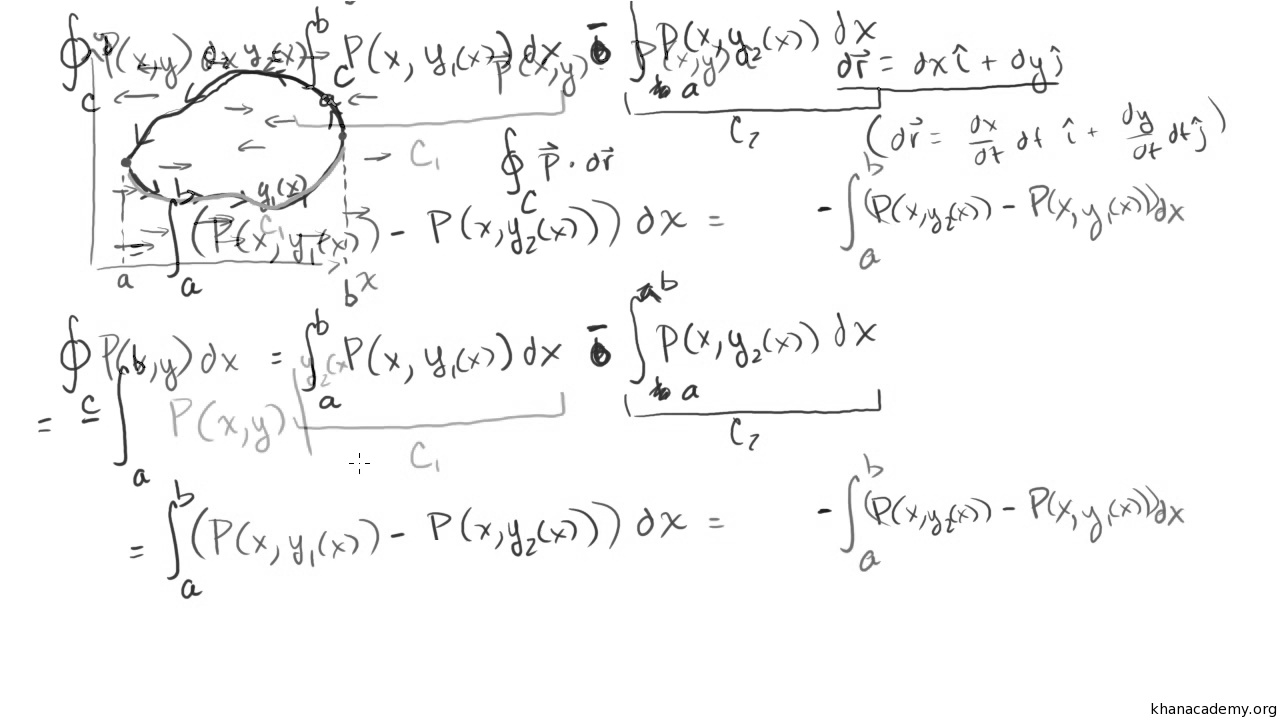 ∮_C P(x,y) dx ∫_a^b P(x, y₁(x)) dx − ∫_a^b P(x, y₂(x)) dx
dr⃗ = dx î + dy ĵ
y₂(x)
C
C₁
C₂
(dr⃗ = dx/dt dt î + dy/dt dt ĵ)
∮_C P⃗ · dr⃗
y₁(x)
C₁
= ∫_a^b (P(x, y₁(x)) − P(x, y₂(x))) dx = − ∫_a^b (P(x, y₂(x)) − P(x, y₁(x))) dx
a
b
x
∮_C P(x,y) dx = ∫_a^b P(x, y₁(x)) dx − ∫_a^b P(x, y₂(x)) dx
C₁
C₂
= − ∫_a^b P(x,y) |^{y₂(x)}
= ∫_a^b (P(x, y₁(x)) − P(x, y₂(x))) dx = − ∫_a^b (P(x, y₂(x)) − P(x, y₁(x))) dx
khanacademy.org